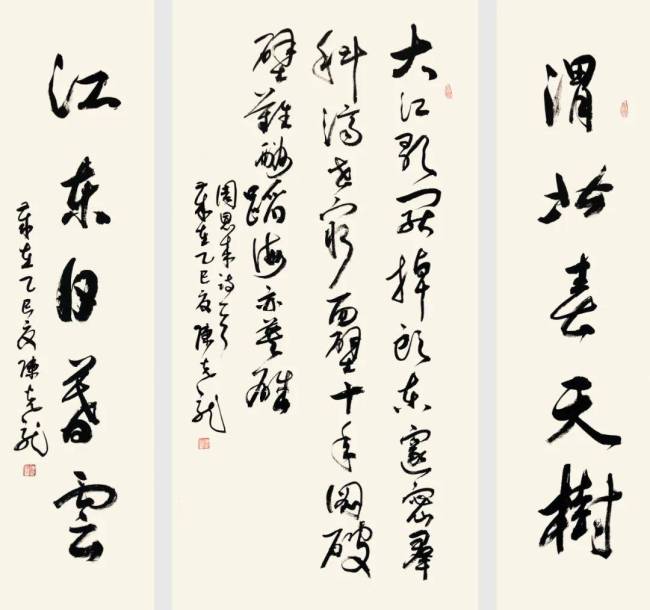 渭北春天樹
大江歌罷掉頭東邃密羣
科濟世窮面壁十年圖破
壁難酬蹈海亦英雄
周恩来詩一首
歲在乙巳夏陳克龍
江東日暮雲
歲在乙巳夏陳克龍